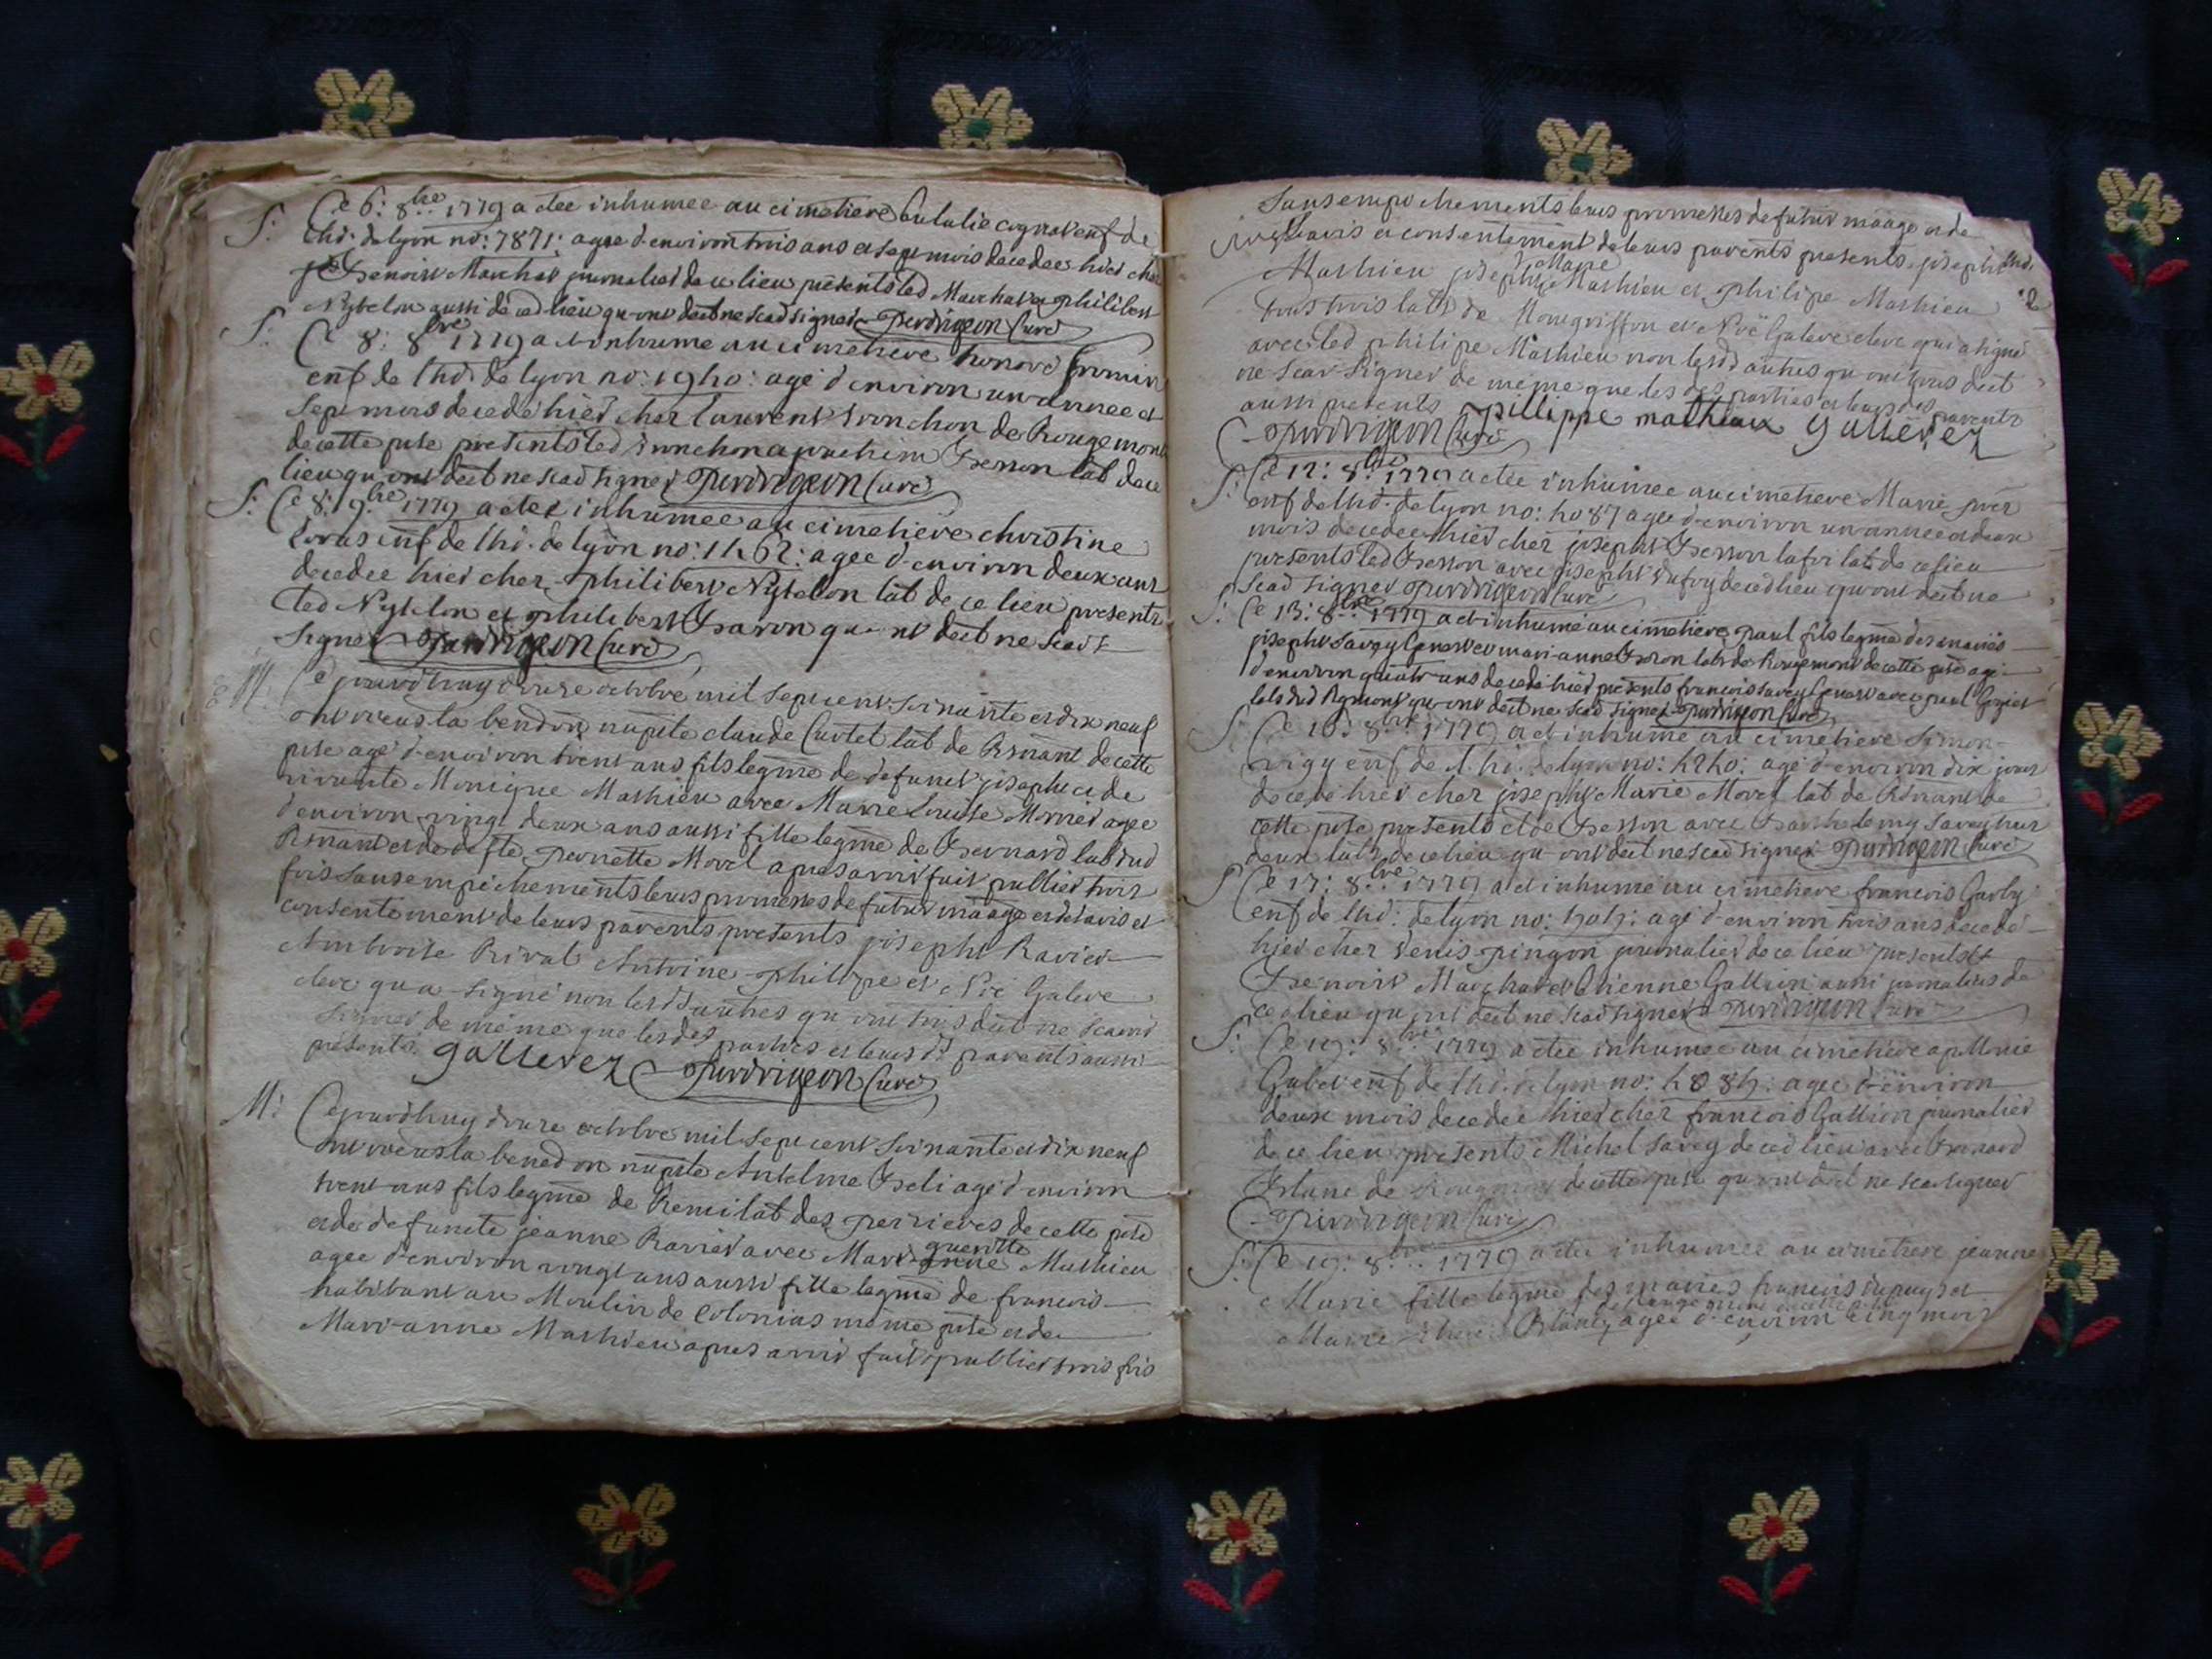 S: Ce 6: 8bre 1779 a etee inhumee au cimetiere Eulalie cognat enf de
lhd: de lyon no: 7871: agee d'environ trois ans et sept mois decedee hier chez
Benoist Marchat journalier de ce lieu présents led Marchat et philibert
Nybelon aussi de ced lieu qu ont deét ne scad signer Perdrigeon Curé
S: Ce 8: 8bre 1779 a et inhumé au cimetiere honoré fromin
enf de lhd. de lyon no: 1940: agé d'environ un année et
sept mois decedé hier chez laurent tronchon de Rougemont
de cette psse présents led tronchon a Besson lab de ce
lieu qu ont deét ne scad signer Perdrigeon Curé
S: Ce 8: 9bre 1779 a etee inhumee au cimetiere christine
enf de lhd. de lyon no: 1462: agee d'environ deux ans
decedee hier chez philibert Nybelon lab de ce lieu presents
led Nybelon et philibert Baron qu ont deét ne scad
signer Perdrigeon Curé
M: Cejourdhuy douze octobre mil sept cent soixante et dix neuf
ont receus la bendon nuptle claude Curtet lab de Rsnant de cette
psse agé d'environ trent ans fils legme de defunct joseph et de
vivante Monique Mathieu avec Marie Louise Monier agee
d'environ vingt deux ans aussi fille legme de Bernard lab dud
Rsnant et de defte pernette Morel apres avoir fait publier trois
fois sans empechements leurs promesses de futur maage et de lavis et
consentement de leurs parents presents joseph Ravier
Ambroise Rival Antoine philipe et Noë Galeve
cleve qu a signé non lesds autres qu ont tous deét ne scavoir
signer de méme que lesdes parties et leurs ds parents aussi
présents. gallevez Perdrigeon Curé
M: Cejourdhuy douze octobre mil sept cent soixante et dix neuf
ont receus la benedon nuptle Antelme Beli agé d'environ
trent ans fils legme de Remi lab des perrieres de cette psse
et de defuncte jeanne Ravier avec Mari gueritte Mathieu
agee d'environ vingt ans aussi fille legme de francois
habitant au Moulin de Colonias méme psse et de
Mari-anne Mathieu apres avoir fait publier trois fois
sans empechements leurs promesses de futur maage et de
lavis et consentement de leurs parents presents joseph
Mathieu joseph Marie Mathieu et philipe Mathieu
tous trois labs de Mongriffon et Noë Galeve cleve qui a signé
avec led philipe Mathieu non lesds autres qu ont tous deét
ne scav signer de méme que les des parties et leurs des parents
aussi présents philippe mathieux gallevez
Perdrigeon Curé
S: Ce 12: 8bre 1779 a etee inhumee au cimetiere Marie
enf de lhd. de lyon no: 4087 agee d'environ un annee et deux
mois decedee hier chez joseph Besson lab de ce lieu
presents led Besson avec joseph dufoy de ced lieu qu ont deét ne
scad signer Perdrigeon Curé
S: Ce 13: 8bre 1779 a et inhumé au cimetiere paul fils legme des mariés
joseph Savey Genest et mari-anne Baron labs de Rougemont de cette psse agé
d'environ quatr ans decedé hier présents francois Savey Genest avec paul
labs dud Rgmont qu ont deét ne scad signer Perdrigeon Curé
S: Ce 16: 8bre 1779 a et inhumé au cimetiere Simon
enf de l.hd. de lyon no: 4240: agé d'environ dix jours
decedé hier chez joseph Marie Morel lab de Rsnant de
cette psse presents Besson avec Barthelemy Savey
deux labs de ce lieu qu ont deét ne scad signer Perdrigeon Curé
S: Ce 17: 8bre 1779 a et inhumé au cimetiere francois
enf de lhd: de lyon no: agé d'environ trois ans decedé
hier chez Denis pingon journalier de ce lieu presents
Benoist Marchat et Etienne Gallion aussi journaliers de
ced lieu qu ont deét ne scad signer Perdrigeon Curé
S: Ce 19: 8bre 1779 a etee inhumee au cimetiere apollonie
enf de lhd. de lyon no: agee d'environ
deux mois decedee hier chez francois Gallion journalier
de ce lieu presents Michel Savey de ced lieu avec Bernard
de Rougemont de cette psse qu ont deét ne sca signer
Perdrigeon Curé
S: Ce 19: 8bre 1779 a etee inhumee au cimetiere jeanne
Marie fille legme des mariés francois dupuys et
Marie agee d'environ cinq mois